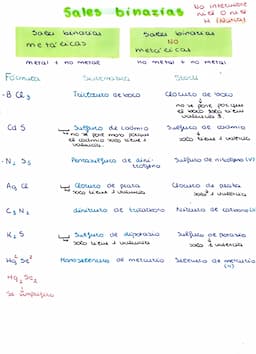 Sales binarias
No interviene
ni el O ni el
H (Nunca)
Sales binarias
metálicas
Sales binarias
NO
metálicas
metal + no metal
no metal + no metal
Fórmula
Sistemática
Stock
-B Cl3
Tricloruro de boro
Cloruro de boro
no se pone porque
el boro solo tiene
valencia 3.
Cd S
Sulfuro de cadmio
no se pone mono porque
el cadmio solo tiene 1
valencia.
Sulfuro de cadmio
solo tiene 1 valencia
-N2 S5
Pentasulfuro de dini-
trógeno
Sulfuro de nitrógeno (V)
Ag Cl
Cloruro de plata
solo tiene 1 valencia
Cloruro de plata
solo tiene 1 valencia
C3 N2
dinitruro de tricarbono
Nitruro de carbono
K2 S
Sulfuro de dipotasio
solo tiene 1 valencia
Sulfuro de potasio
solo 1 valencia
Hg Se
Monoseleniuro de mercurio
Seleniuro de mercurio
(II)
Hg2 Se2
Se simplifica